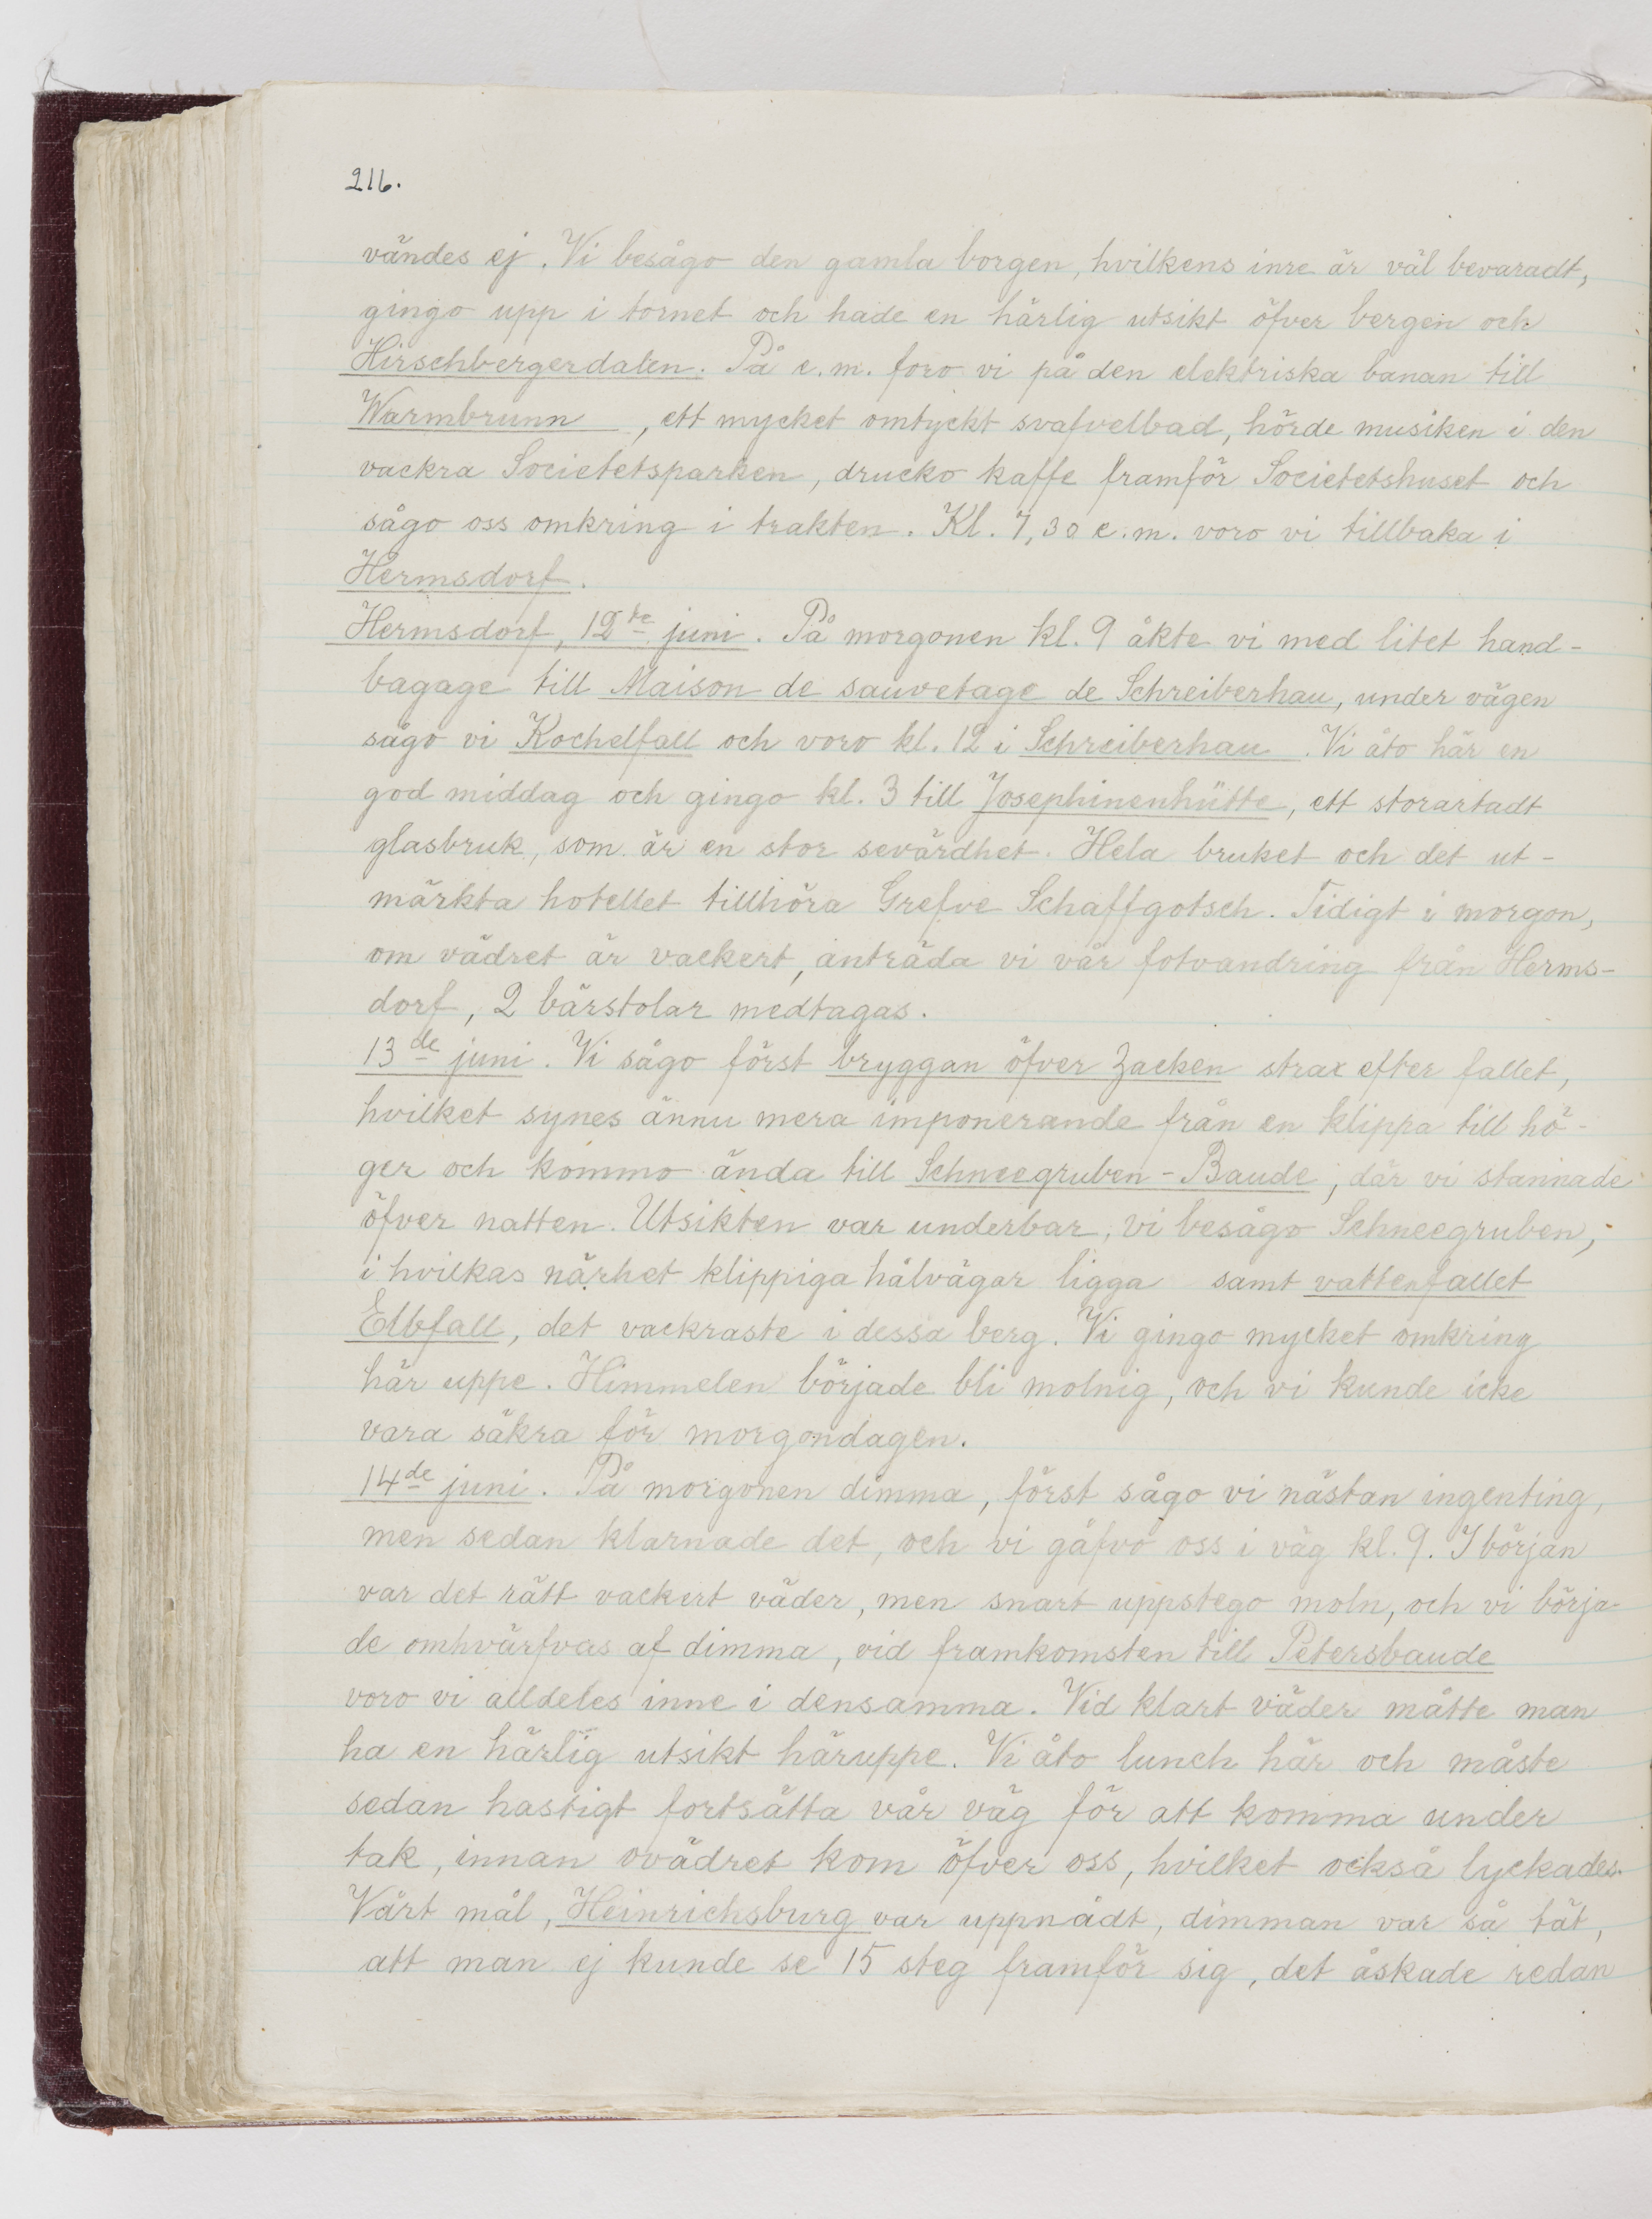 216.
vändes ej. Vi besågo den gamla borgen, hvilkens inre är väl bevaradt,
gingo upp i tornet och hade en härlig utsikt öfver bergen och
Hirschbergerdalen. På e.m. foro vi på den elektriska banan till
Warmbrunn, ett mycket omtyckt svafvelbad, hörde musiken i den
vackra Societetsparken, drucko kaffe framför Societetshuset och
sågo oss omkring i trakten. Kl. 7,30 e.m. voro vi tillbaka i
Hermsdorf.
Hermsdorf, 12te juni. På morgonen kl. 9 åkte vi med litet hand-
bagage till Maison de sauvetage de Schreiberhau, under vägen
sågo vi Kochelfall och voro kl. 12 i Schreiberhau. Vi åto här en
god middag och gingo kl. 3 till Josephinenhütte, ett storartadt
glasbruk, som är en stor sevärdhet. Hela bruket och det ut-
märkta hotellet tillhöra Grefve Schaffgotsch. Tidigt i morgon,
om vädret är vackert, anträda vi vår fotvandring från Herms-
dorf, 2 bärstolar medtagas.
13de juni. Vi sågo först bryggan öfver Zacken strax efter fallet,
hvilket synes ännu mera imponerande från en klippa till hö-
ger och kommo ända till Schneegruben-Baude, där vi stannade
öfver natten. Utsikten var underbar, vi besågo Schneegruben,
i hvilkas närhet klippiga hålvägar ligga samt vattenfallet
Elbfall, det vackraste i dessa berg. Vi gingo mycket omkring
här uppe. Himmelen började bli molnig, och vi kunde icke
vara säkra för morgondagen.
14de juni. På morgonen dimma, först sågo vi nästan ingenting,
men sedan klarnade det, och vi gåfvo oss i väg kl. 9. I början
var det rätt vackert väder, men snart uppstego moln, och vi börja-
de omhvärfvas af dimma, vid framkomsten till Petersbaude
voro vi alldeles inne i densamma. Vid klart väder måtte man
ha en härlig utsikt häruppe. Vi åto lunch här och måste
sedan hastigt fortsätta vår väg för att komma under
tak, innan ovädret kom öfver oss, hvilket också lyckades.
Vårt mål, Heinrichsburg var uppnådt, dimman var så tät,
att man ej kunde se 15 steg framför sig, det åskade redan